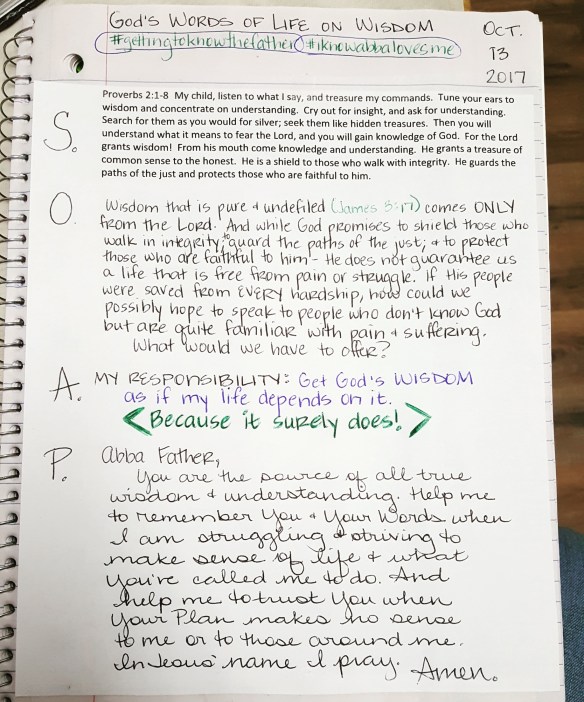 God's Words of Life on Wisdom
Oct. 13 2017
#gettingtoknowthefather #iknowabbalovesme
S.
Proverbs 2:1-8 My child, listen to what I say, and treasure my commands. Tune your ears to
wisdom and concentrate on understanding. Cry out for insight, and ask for understanding.
Search for them as you would for silver; seek them like hidden treasures. Then you will
understand what it means to fear the Lord, and you will gain knowledge of God. For the Lord
grants wisdom! From his mouth come knowledge and understanding. He grants a treasure of
common sense to the honest. He is a shield to those who walk with integrity. He guards the
paths of the just and protects those who are faithful to him.
O.
Wisdom that is pure & undefiled (James 3:17) comes ONLY
from the Lord. And while God promises to shield those who
walk in integrity; to guard the paths of the just; & to protect
those who are faithful to him - He does not guarantee us
a life that is free from pain or struggle. If His people
were saved from EVERY hardship, how could we
possibly hope to speak to people who don't know God
but are quite familiar with pain & suffering.
What would we have to offer?
A.
MY RESPONSIBILITY: Get God's WISDOM
as if my life depends on it.
<Because it surely does!>
P.
Abba Father,
You are the source of all true
wisdom & understanding. Help me
to remember You & Your Words when
I am struggling & striving to
make sense of life & what
You're called me to do. And
help me to trust You when
Your Plan makes no sense
to me or to those around me.
In Jesus' name I pray. Amen.